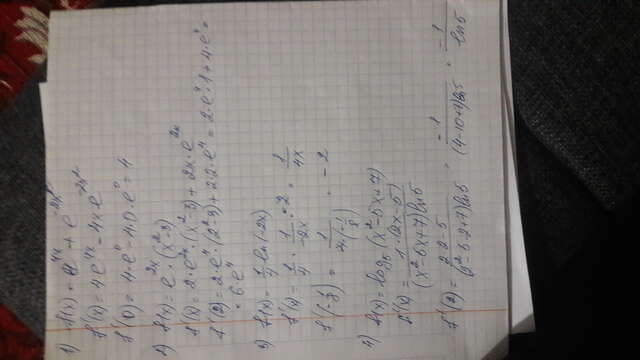 1) f(x) = e^{4x} + e^{-2x²}
f'(x) = 4·e^{4x} - 4x e^{-2x²}
f'(0) = 4·e⁰ - 4·0·e⁰ = 4
2) f(x) = e^{2x}·(x²-3)
f'(x) = 2·e^{2x}·(x²-3) + 2x·e^{2x}
f'(2) = 2·e⁴·(2²-3) + 2·2·e⁴ = 2·e⁴·1 + 4·e⁴ =
= 6·e⁴
3) f(x) = 1/4 ln(-2x)
f'(x) = 1/4 · 1/(-2x) · -2 = 1/(4x)
f'(-1/8) = 1/(4·(-1/8)) = -2
4) f(x) = log₅(x²-5x+7)
f'(x) = 1·(2x-5)/((x²-5x+7)ln5)
f'(2) = (2·2-5)/((2²-5·2+7)ln5) = -1/((4-10+7)ln5) = -1/ln5